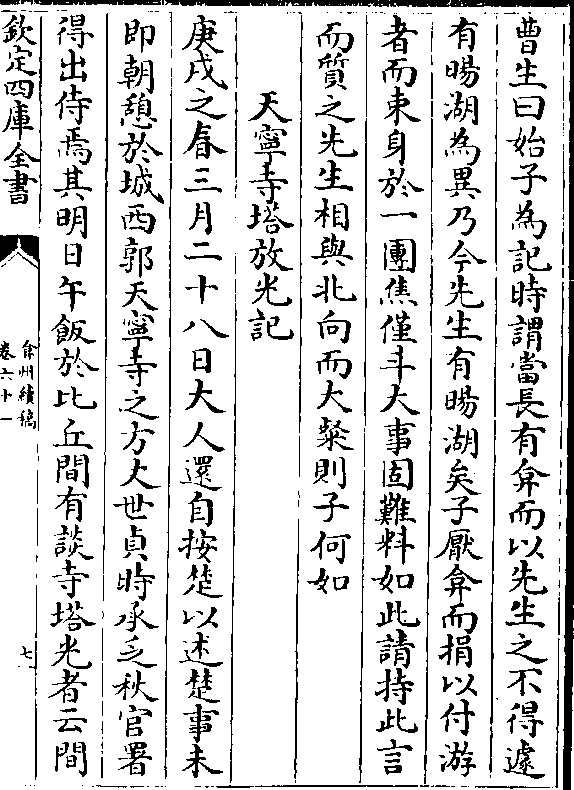 曹生曰始子為記時謂當長有弇而以先生之不得遽
有暘湖為異乃今先生有暘湖矣子厭弇而捐以付游
者而束身於一團焦僅斗大事固難料如此請持此言
而質之先生相與北向而大粲則子何如
天寧寺塔放光記
庚戌之春三月二十八日大人還自按楚以述楚事未
即朝憩於城西郭天寧寺之方丈世貞時承乏秋官署
得出侍焉其明日午飯於比丘間有談寺塔光者云間
欽定四庫全書
弇州續稿
卷六十一
七